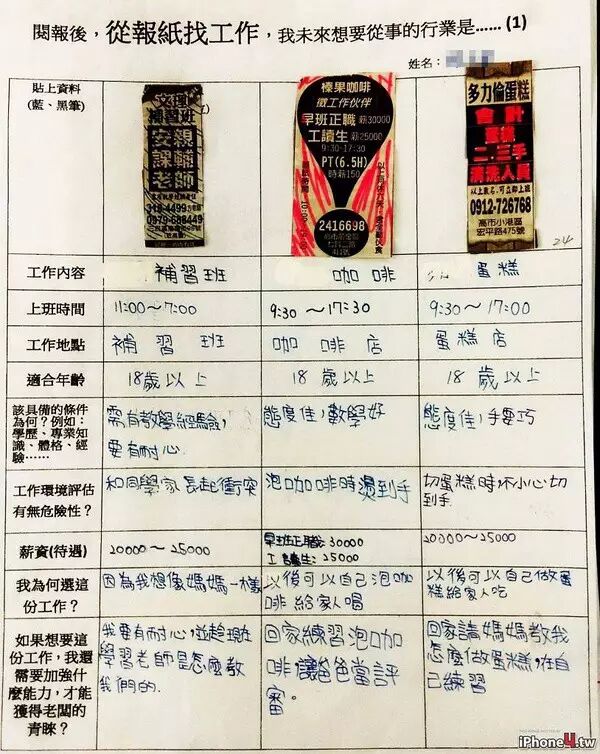 閱報後，從報紙找工作，我未來想要從事的行業是……(1)
姓名：
貼上資料
(藍、黑筆)
文理
補習班
安親
課輔
老師
榛果咖啡
徵工作伙伴
早班正職 薪30000
工讀生 薪25000
9:30-17:30
PT(6.5H)
時薪150
2416698
多力倫蛋糕
會計
二、三手
清洗人員
以上數名，可立即上班
0912-726768
高市小港區
宏平路475號
工作內容
補習班
咖啡
蛋糕
上班時間
11:00～7:00
9:30～17:30
9:30～17:30
工作地點
補習班
咖啡店
蛋糕店
適合年齡
18歲以上
18歲以上
18歲以上
該具備的條件
為何？例如：
學歷、專業知
識、體格、經
驗……
需有教學經驗，
要有耐心
態度佳，數學好
態度佳，手要巧
工作環境評估
有無危險性？
和同學家長起衝突
泡咖啡時燙到手
切蛋糕時不小心切
到手
薪資(待遇)
20000～25000
早班正職：30000
工讀生：25000
20000～25000
我為何選這
份工作？
因為我想像媽媽一樣
以後可以自己泡咖
啡給家人喝
以後可以自己做蛋
糕給家人吃
如果想要這
份工作，我還
需要加強什
麼能力，才能
獲得老闆的
青睞？
我要有耐心，並趁現在
學習老師是怎麼教
我們的.
回家練習泡咖
啡讓爸爸當評
審。
回家請媽媽教我
怎麼做蛋糕，在自
己練習
iPhone4.tw